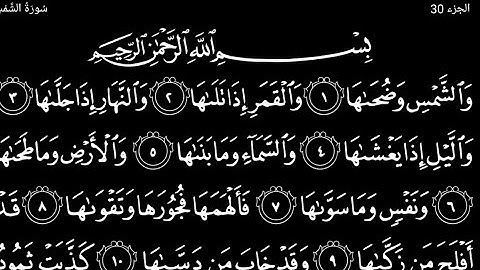 الجزء 30
سُورَةُ الشَّمْ
بِسْمِ اللَّهِ الرَّحْمَٰنِ الرَّحِيمِ
وَالشَّمْسِ وَضُحَىٰهَا ١ وَالْقَمَرِ إِذَا تَلَىٰهَا ٢ وَالنَّهَارِ إِذَا جَلَّىٰهَا ٣
وَالَّيْلِ إِذَا يَغْشَىٰهَا ٤ وَالسَّمَآءِ وَمَا بَنَىٰهَا ٥ وَالْأَرْضِ وَمَا طَحَىٰهَا
٦ وَنَفْسٍ وَمَا سَوَّىٰهَا ٧ فَأَلْهَمَهَا فُجُورَهَا وَتَقْوَىٰهَا ٨ قَدْ
أَفْلَحَ مَن زَكَّىٰهَا ٩ وَقَدْ خَابَ مَن دَسَّىٰهَا ١٠ كَذَّبَتْ ثَمُودُ